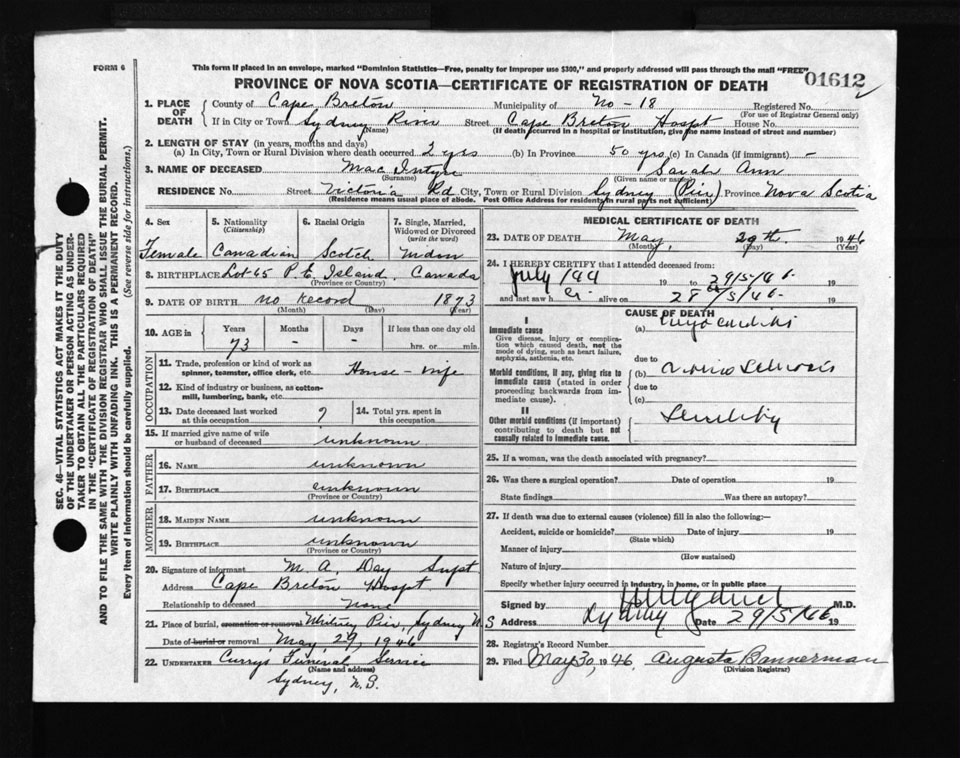 FORM 6
This form if placed in an envelope, marked "Dominion Statistics—Free, penalty for improper use $300," and properly addressed will pass through the mail "FREE"
01612
PROVINCE OF NOVA SCOTIA—CERTIFICATE OF REGISTRATION OF DEATH
SEC. 46—VITAL STATISTICS ACT MAKES IT THE DUTY
OF THE UNDERTAKER OR PERSON ACTING AS UNDER-
TAKER TO OBTAIN ALL THE PARTICULARS REQUIRED
IN THE "CERTIFICATE OF REGISTRATION OF DEATH"
AND TO FILE THE SAME WITH THE DIVISION REGISTRAR WHO SHALL ISSUE THE BURIAL PERMIT.
WRITE PLAINLY WITH UNFADING INK. THIS IS A PERMANENT RECORD.
Every item of information should be carefully supplied. (See reverse side for instructions.)
1. PLACE OF DEATH County of Cape Breton Municipality of No - 18 Registered No.
(For use of Registrar General only)
If in City or Town Sydney River Street Cape Breton Hospt House No.
(Name) (If death occurred in a hospital or institution, give the name instead of street and number)
2. LENGTH OF STAY (in years, months and days)
(a) In City, Town or Rural Division where death occurred 2 yrs (b) In Province 50 yrs (c) In Canada (if immigrant) -
3. NAME OF DECEASED Mac Intyre Sarah Ann
(Surname) (Given name or names)
RESIDENCE No. Street Victoria Rd City, Town or Rural Division Sydney (Pier) Province Nova Scotia
(Residence means usual place of abode. Post Office Address for residents in rural parts not sufficient)
4. Sex 5. Nationality (Citizenship) 6. Racial Origin 7. Single, Married, Widowed or Divorced (write the word)
Female Canadian Scotch Widow
8. BIRTHPLACE Lot 45 P. E. Island. Canada
(Province or Country)
9. DATE OF BIRTH No Record 1873
(Month) (Day)
10. AGE in Years Months Days If less than one day old
73 - - hrs. or min.
OCCUPATION
11. Trade, profession or kind of work as spinner, teamster, office clerk, etc. House-wife
12. Kind of industry or business, as cotton-mill, lumbering, bank, etc.
13. Date deceased last worked at this occupation ? 14. Total yrs. spent in this occupation
15. If married give name of wife or husband of deceased unknown
FATHER
16. NAME unknown
17. BIRTHPLACE unknown
(Province or Country)
MOTHER
18. MAIDEN NAME unknown
19. BIRTHPLACE unknown
(Province or Country)
20. Signature of informant M. A. Day Supt
Address Cape Breton Hospt.
Relationship to deceased None
21. Place of burial, cremation or removal Whitney Pier, Sydney N. S
Date of burial or removal May 29, 1946
22. UNDERTAKER Curry's Funeral Service
(Name and address)
Sydney, N.S.
MEDICAL CERTIFICATE OF DEATH
23. DATE OF DEATH May, 29th. 1946
(Month) (Day)
24. I HEREBY CERTIFY that I attended deceased from:
July 1944 19 to 29/5/46 19
and last saw h er alive on 28/5/46 19
CAUSE OF DEATH
I
Immediate cause
Give disease, injury or complication which caused death, not the mode of dying, such as heart failure, asphyxia, asthenia, etc.
(a) Myocarditis
due to
Morbid conditions, if any, giving rise to immediate cause (stated in order proceeding backwards from immediate cause).
(b)
due to
(c)
II
Other morbid conditions (if important) contributing to death but not causally related to immediate cause.
Senility
25. If a woman, was the death associated with pregnancy?
26. Was there a surgical operation? Date of operation 19
State findings Was there an autopsy?
27. If death was due to external causes (violence) fill in also the following:—
Accident, suicide or homicide? Date of injury 19
(State which)
Manner of injury
(How sustained)
Nature of injury
Specify whether injury occurred in industry, in home, or in public place
Signed by M.D.
Address Sydney Date 29/5/46 19
28. Registrar's Record Number
29. Filed May 30, 1946. Augusta Bannerman
(Division Registrar)